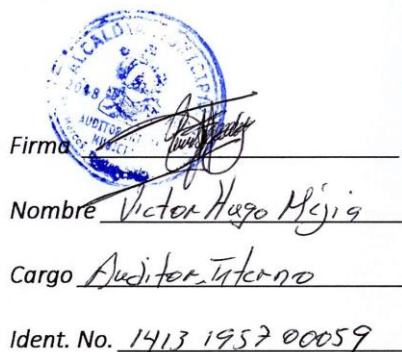 ALCALDIA MUNICIPAL
AUDITORIA
MUNICIPAL
Firma
Nombre Victor Hugo Mejia
Cargo Auditor Interno
Ident. No. 1413 1957 00059